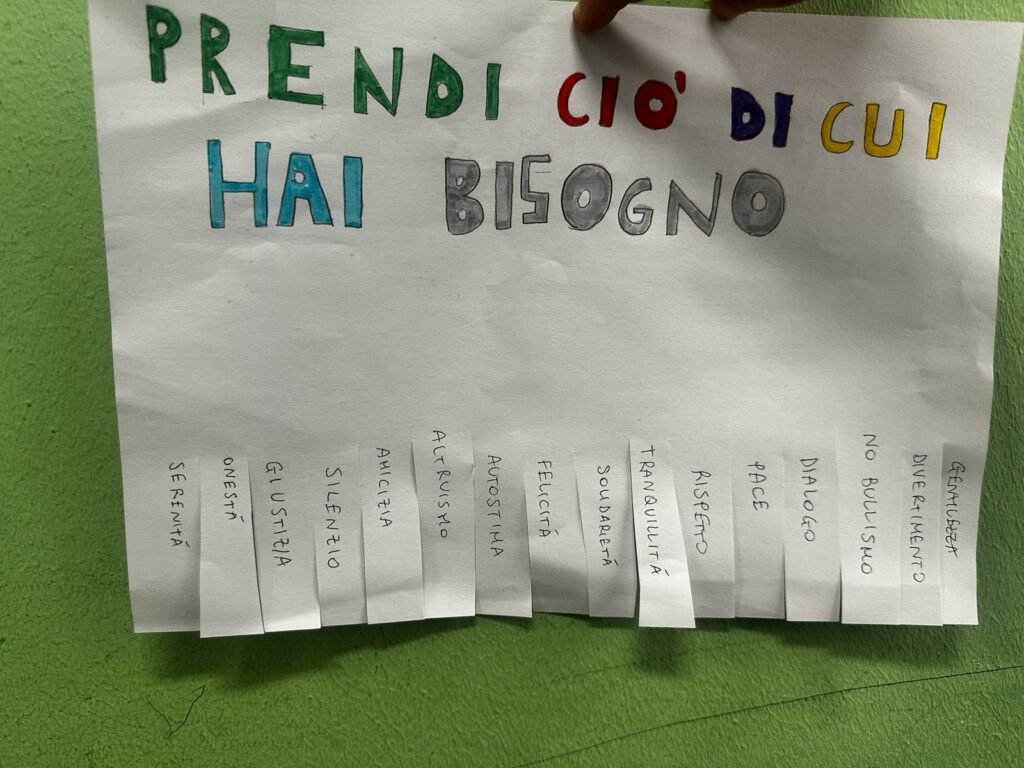 PRENDI CIO' DI CUI
HAI BISOGNO
SERENITÁ
ONESTÁ
GIUSTIZIA
SILENZIO
AMICIZIA
ALTRUISMO
AUTOSTIMA
FELICITÁ
SOLIDARIETÁ
TRANQUILLITÁ
RISPETTO
PACE
DIALOGO
NO BULLISMO
DIVERTIMENTO
GENTILEZZA